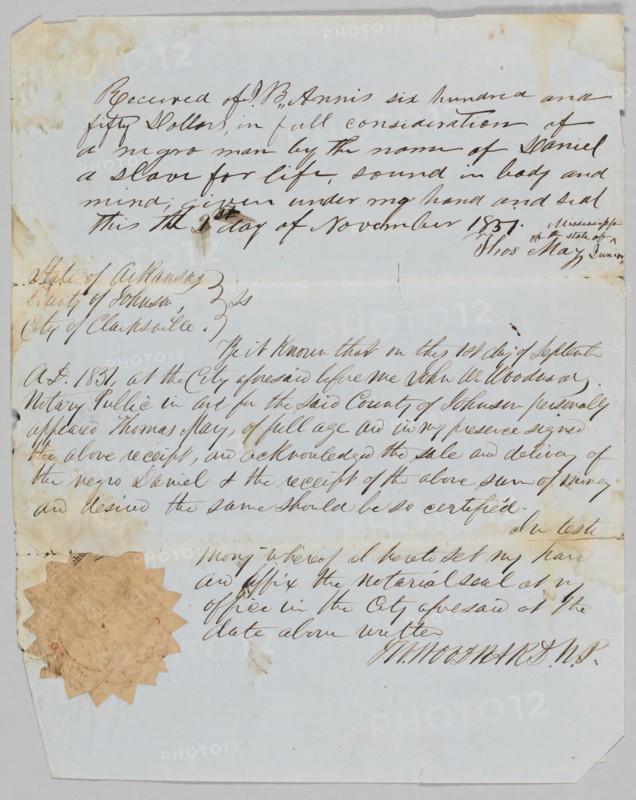 Received of J. B. Annis six hundred and
fifty Dollars, in full consideration of
a negro man by the name of Daniel
a slave for life, sound in body and
mind; given under my hand and seal
this the 1st day of November 1831.
Mississippi
of the state of
Thos May, Junior
State of Arkansas
County of Johnson
City of Clarksville
} ss
Be it Known that on this 1st day of Septemb
A.D. 1831, at the City aforesaid before me John W. Woodward,
Notary Public in and for the said County of Johnson personally
appeared Thomas May, of full age and in my presence signed
the above receipt, and acknowledged the sale and delivery of
the negro Daniel & the receipt of the above sum of money
and desired the same should be so certified.
In testi
mony whereof I hereto set my hand
and affix the notarial seal at my
office in the City aforesaid at the
date above written
J.W. WOODWARD. N.P.
PHOTO12